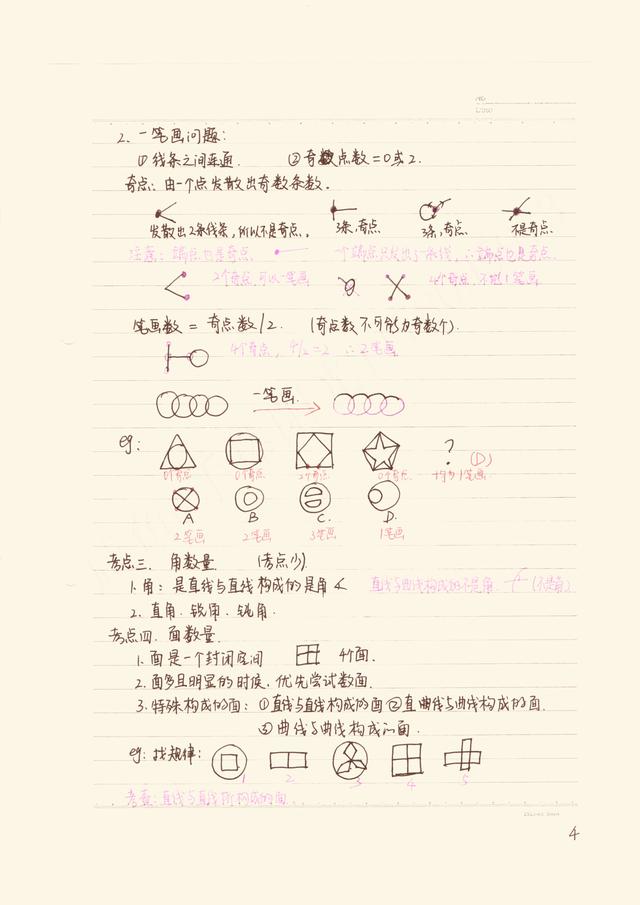 2、一笔画问题:
①线条之间连通. ②奇数点数=0或2.
奇点:由一个点发散出奇数条数.
发散出2条线条,所以不是奇点。 3条,奇点 3条,奇点. 不是奇点.
注意:端点也是奇点. 一个端点只发出了一条线,∴端点也是奇点.
2个奇点,可以一笔画 4个奇点,不能1笔画
笔画数 = 奇点数/2. (奇点数不可能为奇数个).
4个奇点, 4/2=2 ∴2笔画
一笔画.
eg: ?
0个奇点 0个奇点 2个奇点 0个奇点 均为1笔画 (D)
A B C. D.
2笔画 2笔画 3笔画 1笔画
考点三. 角数量. (考点少).
1.角:是直线与直线构成的是角 直线与曲线构成的不是角.
2.直角.锐角.钝角.
考点四.面数量.
1.面是一个封闭空间 4个面.
2.面多且明显的时候,优先尝试数面.
3.特殊构成的面:①直线与直线构成的面②直曲线与曲线构成的面.
③曲线与曲线构成的面.
eg:找规律:
1 2 3 4 5
考查:直线与直线所构成的面.
4